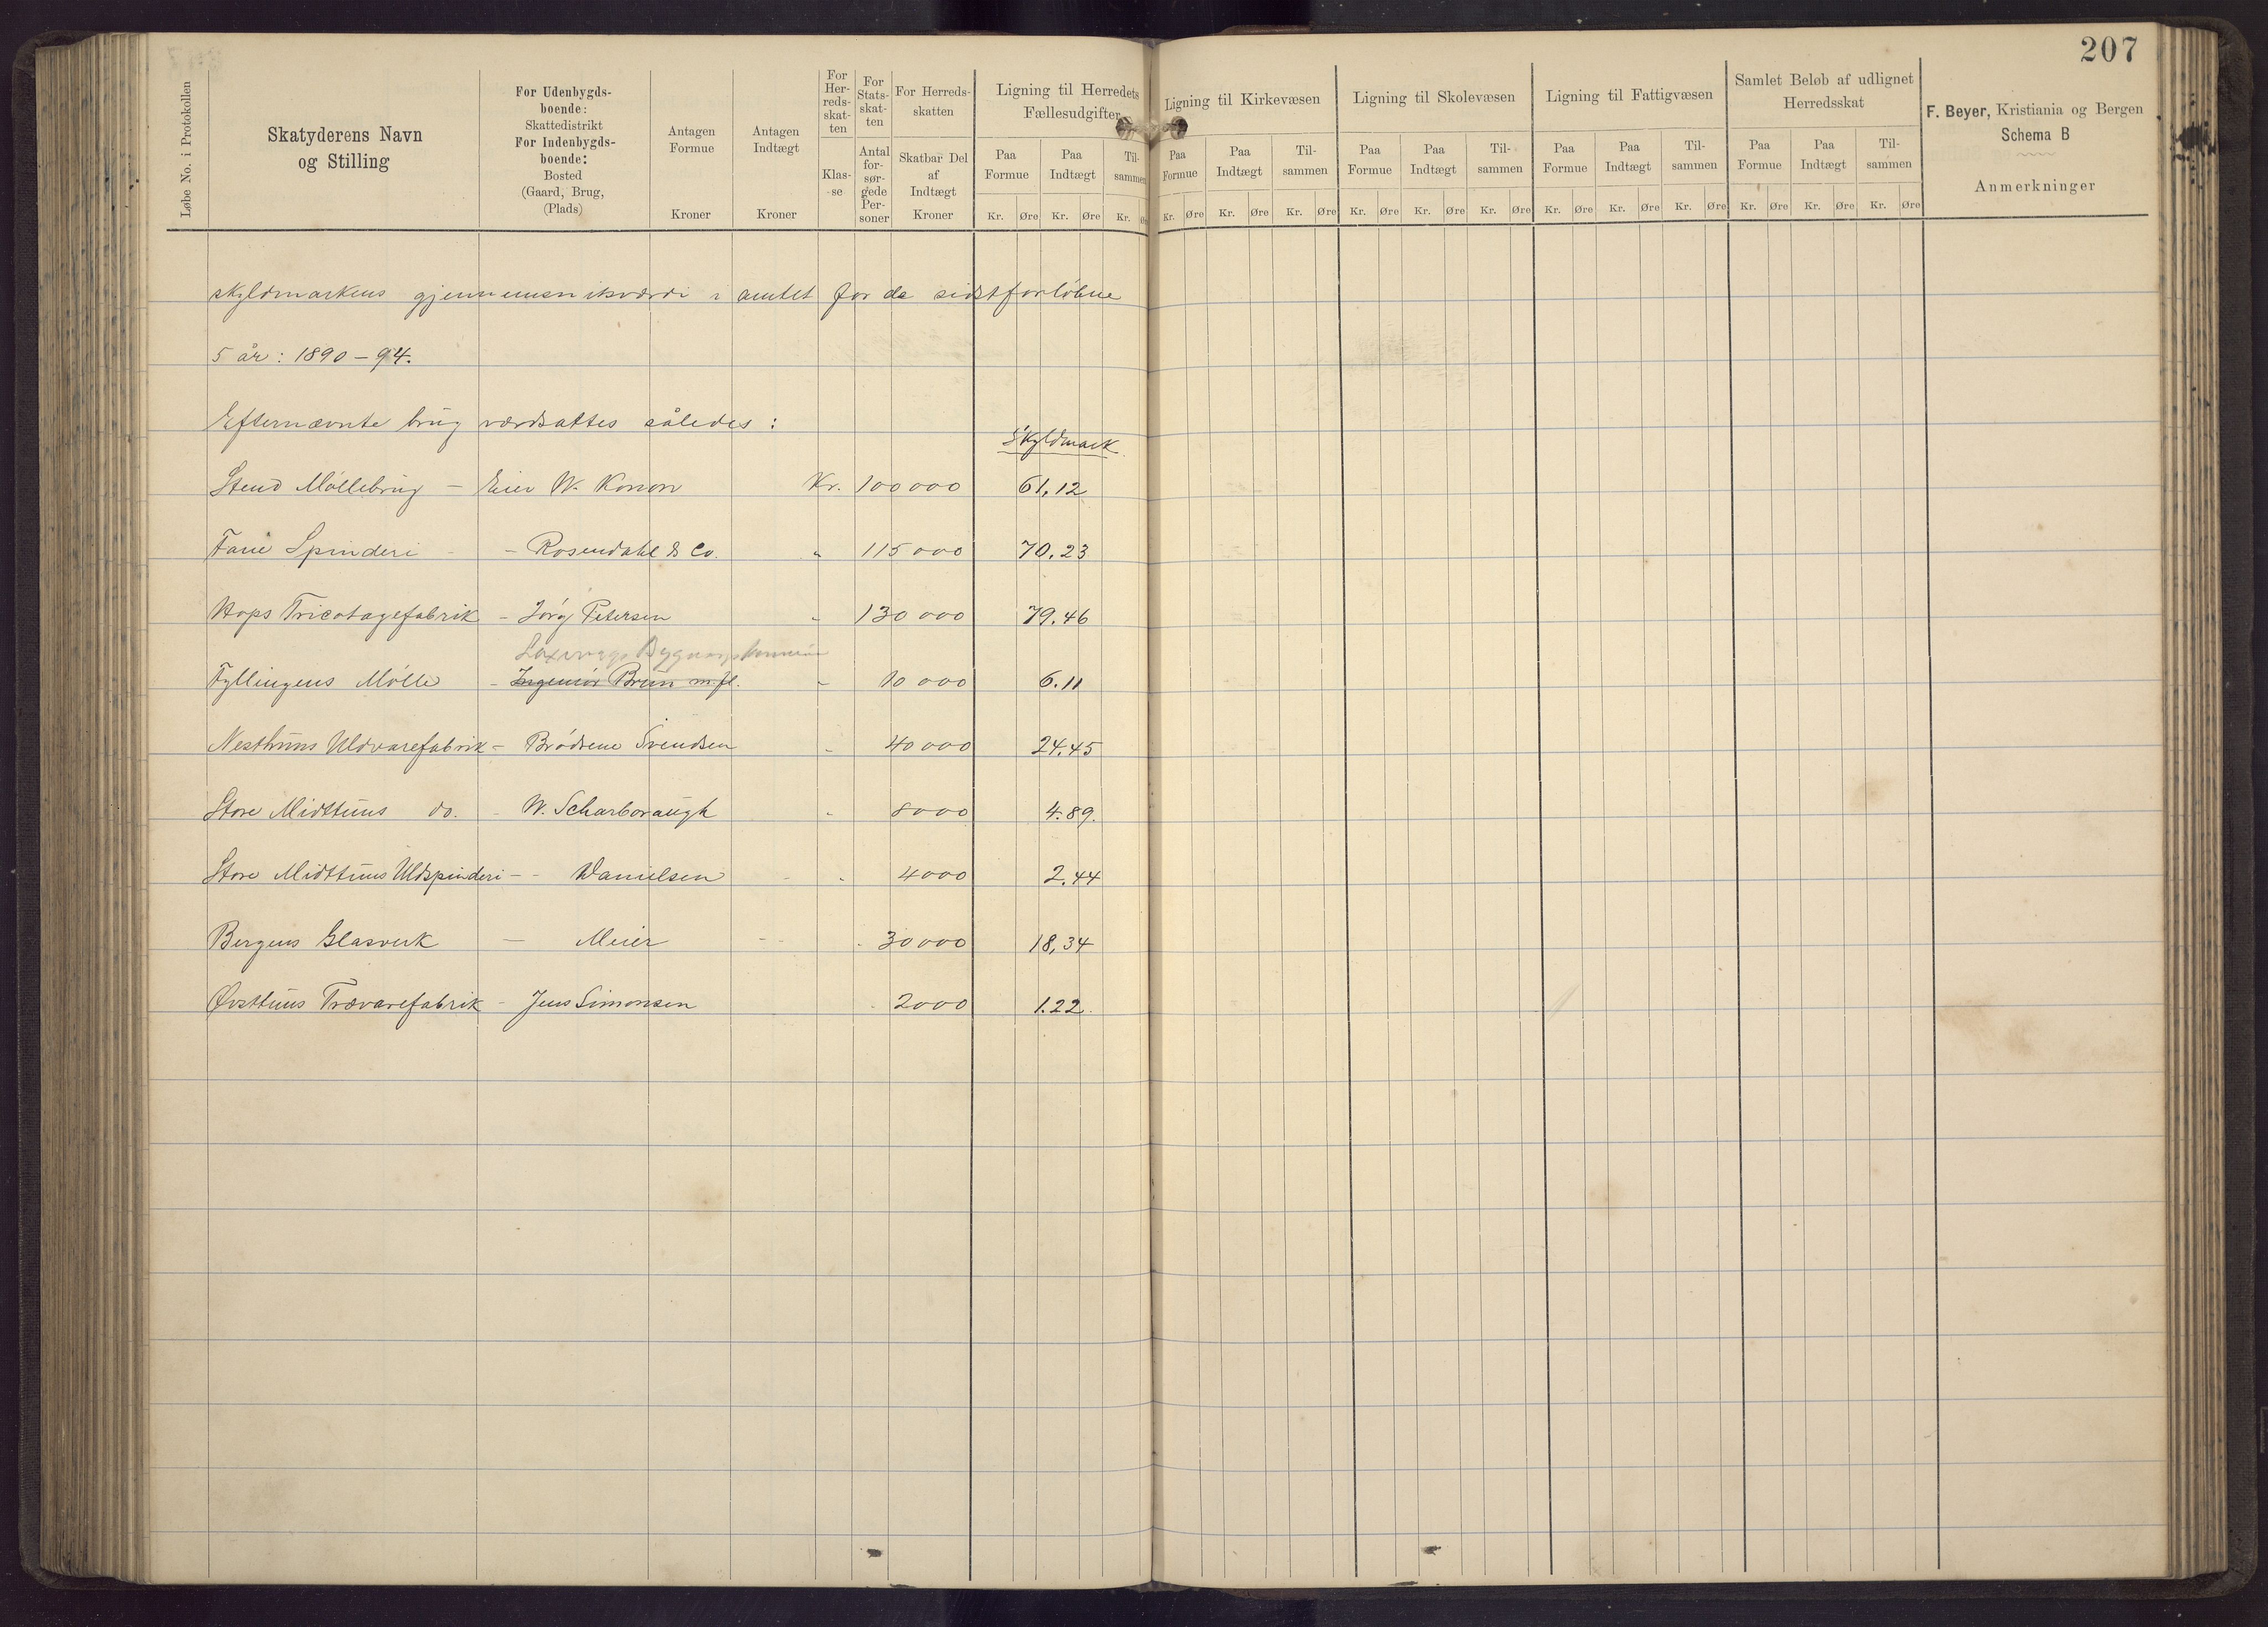 207
Løbe No. i Protokollen
Skatyderens Navn
og Stilling
For Udenbygds-
boende:
Skattedistrikt
For Indenbygds-
boende:
Bosted
(Gaard, Brug,
(Plads)
Antagen
Formue
Kroner
Antagen
Indtægt
Kroner
For
Her-
reds-
skat-
ten
Klas-
-se
For
Stats-
skat-
ten
Antal
for-
sør-
gede
Per-
soner
For Herreds-
skatten
Skatbar Del
af
Indtægt
Kroner
Ligning til Herredets
Fællesudgifter
Paa
Formue
Paa
Indtægt
Til-
sammen
Kr. Øre Kr. Øre Kr. Øre
Ligning til Kirkevæsen
Paa
Formue
Paa
Indtægt
Til-
sammen
Kr. Øre Kr. Øre Kr. Øre
Ligning til Skolevæsen
Paa
Formue
Paa
Indtægt
Til-
sammen
Kr. Øre Kr. Øre Kr. Øre
Ligning til Fattigvæsen
Paa
Formue
Paa
Indtægt
Til-
sammen
Kr. Øre Kr. Øre Kr. Øre
Samlet Beløb af udlignet
Herredsskat
Paa
Formue
Paa
Indtægt
Til-
sammen
Kr. Øre Kr. Øre Kr. Øre
F. Beyer, Kristiania og Bergen
Schema B
Anmerkninger
skyldmarkens gjennemsnitsværdi i amtet for de sidstforløbne
5 år: 1890-94.
Efternævnte brug værdsattes således:
Skyldmark
Stend Møllebrug - Eier W. Konow Kr. 100000 61,12
Fane Spinderi - - Rosendahl & Co. " 115000 70.23
Hops Tricotagefabrik - Jørg Petersen " 130000 79.46
Laxevags Bygnings
Fyllingens Mølle - Ingeniør Brun m.fl. " 10000 6.11
Nesthuns Uldvarefabrik - Brødrene Svendsen " 40000 24.45
Store Midttuns do. - W. Scharboraugh " 8000 4.89.
Store Midttuns Uldspinderi - - Danielsen - " 4000 2.44
Bergens Glasverk - Meier - - 30000 18,34
Øvsttuns Trævarefabrik - Jens Simonsen 2000 1.22.